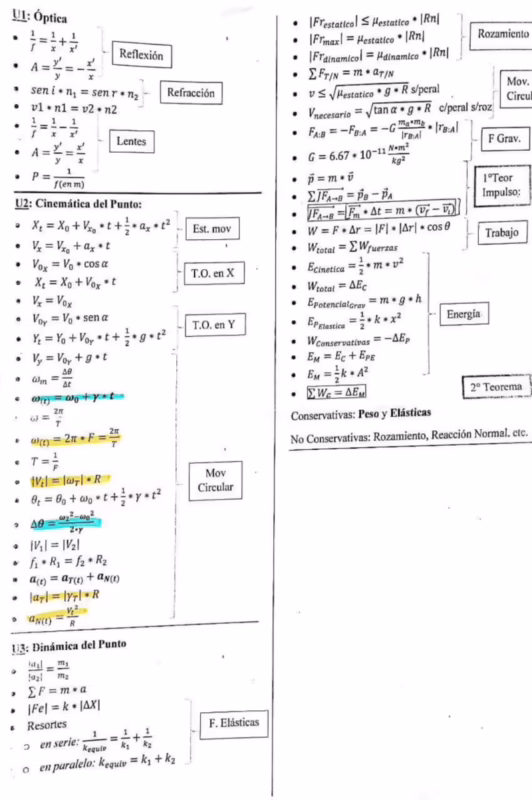 U1: Óptica
• 1/f = 1/x + 1/x'
• A = y'/y = − x'/x
Reflexión
• sen i * n₁ = sen r * n₂
• v1 * n1 = v2 * n2
Refracción
• 1/f = 1/x − 1/x'
• A = y'/y = x'/x
• P = 1/f(en m)
Lentes
U2: Cinemática del Punto:
• Xₜ = X₀ + Vₓ₀ * t + 1/2 * aₓ * t²
• Vₓ = Vₓ₀ + aₓ * t
Est. mov
• V₀ₓ = V₀ * cos α
• Xₜ = X₀ + V₀ₓ * t
• Vₓ = V₀ₓ
T.O. en X
• V₀ᵧ = V₀ * sen α
• Yₜ = Y₀ + V₀ᵧ * t + 1/2 * g * t²
• Vᵧ = V₀ᵧ + g * t
T.O. en Y
• ωₘ = Δθ/Δt
• ω₍ₜ₎ = ω₀ + γ * t
• ω = 2π/T
• ω₍ₜ₎ = 2π * F = 2π/T
• T = 1/F
• |Vₜ| = |ω_T| * R
• θₜ = θ₀ + ω₀ * t + 1/2 * γ * t²
• Δθ = (ω₂² − ω₀²)/(2*γ)
• |V₁| = |V₂|
• f₁ * R₁ = f₂ * R₂
• a₍ₜ₎ = a_T(t) + a_N(t)
• |a_T| = |γ_T| * R
• a_N(t) = Vₜ²/R
Mov Circular
U3: Dinámica del Punto
• |a₁|/|a₂| = m₁/m₂
• ∑F = m * a
• |Fe| = k * |ΔX|
• Resortes
○ en serie: 1/k_equiv = 1/k₁ + 1/k₂
○ en paralelo: k_equiv = k₁ + k₂
F. Elásticas
• |Fr_estatico| ≤ μ_estatico * |Rn|
• |Fr_max| = μ_estatico * |Rn|
• |Fr_dinamico| = μ_dinamico * |Rn|
Rozamiento
• ∑F_T/N = m * a_T/N
• v ≤ √(μ_estatico * g * R) s/peral
• V_necesario = √(tan α * g * R) c/peral s/roz
Mov.
Circul
• F_A:B = −F_B:A = −G (mₐ*m_b)/|r_B:A| * |r_B:A|
• G = 6.67 * 10⁻¹¹ N*m²/kg²
F Grav.
• p⃗ = m * v⃗
• ∑J⃗F_A→B = p⃗_B − p⃗_A
• J⃗F_A→B = F⃗ₘ * Δt = m * (v⃗_f − v⃗ᵢ)
1°Teor
Impulso;
• W = F * Δr = |F| * |Δr| * cos θ
• W_total = ∑W_fuerzas
Trabajo
• E_Cinetica = 1/2 * m * v²
• W_total = ΔE_C
• E_PotencialGrav = m * g * h
• E_PElastica = 1/2 * k * x²
• W_Conservativas = −ΔE_p
• E_M = E_C + E_PE
• E_M = 1/2 k * A²
Energía
• ∑W_C = ΔE_M
2° Teorema
Conservativas: Peso y Elásticas
No Conservativas: Rozamiento, Reacción Normal, etc.